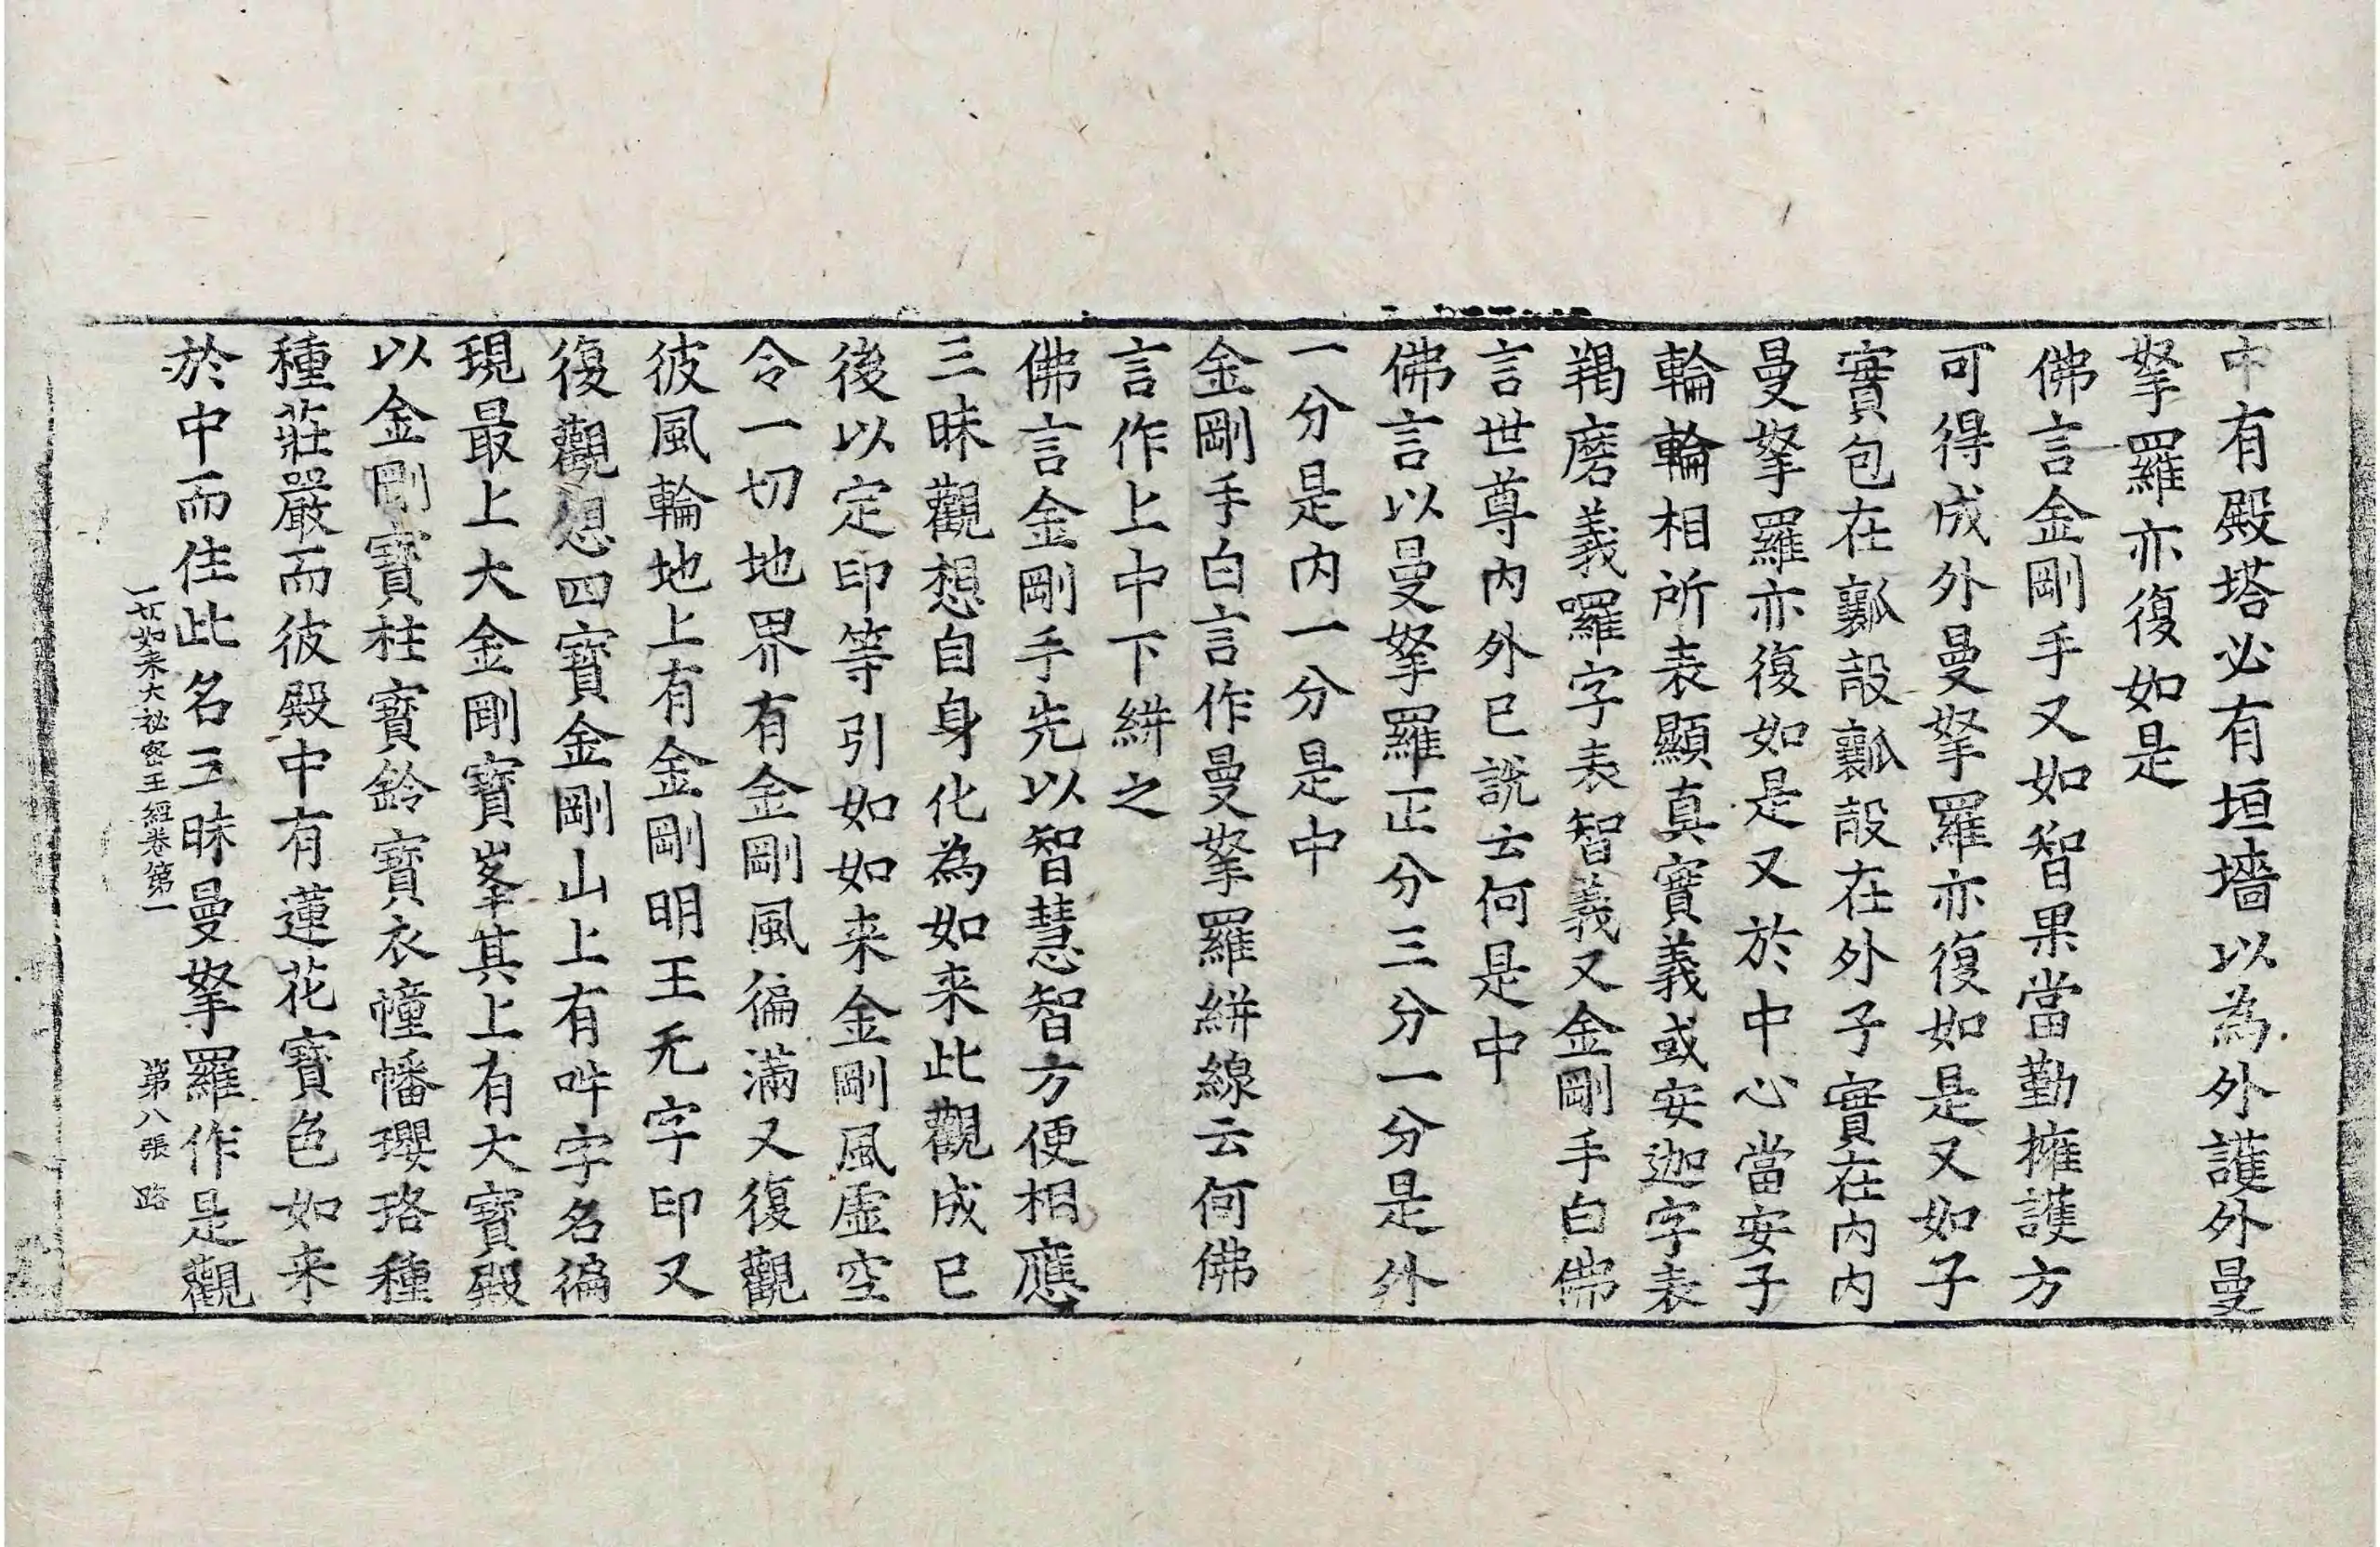 中有殿塔必有垣墻以為外護外曼
拏羅亦復如是
佛言金剛手又如智果當勤擁護方
可得成外曼拏羅亦復如是又如子
實包在瓤㲉瓤㲉在外子實在内内
曼拏羅亦復如是又於中心當安子
輪輪相所表顯真實義或安迦字表
羯磨義囉字表智義又金剛手白佛
言世尊内外已說云何是中
佛言以曼拏羅正分三分一分是外
一分是内一分是中
金剛手白言作曼拏羅絣線云何佛
言作上中下絣之
佛言金剛手先以智慧智方便相應
三昧觀想自身化為如来此觀成已
後以定印等引如如来金剛風虛空
令一切地界有金剛風徧滿又復觀
彼風輪地上有金剛明王旡字印又
復觀想四寶金剛山上有吽字名徧
現最上大金剛寶峯其上有大寶殿
以金剛寶柱寶鈴寶衣幢幡瓔珞種
種莊嚴而彼殿中有蓮花寶色如来
於中而住此名三昧曼拏羅作是觀
一切如来大秘密王經卷第一 第八張 路